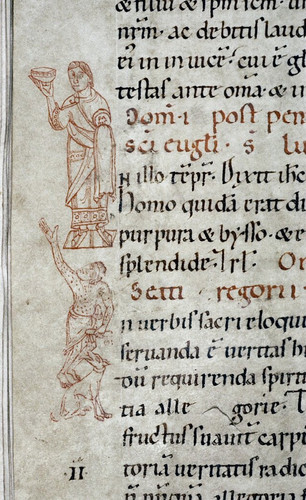 & filiu & spm scm. u
nrm. ac debitis laud
ei in in uice. cui ē gl
testas ante oma & n
Dom. i post pen
sci eugli. s lu
N illo tēpr. Dixit ihc
Homo quidā erat di
purpura & bysso. & e
splendide. Irl. O
Sc̄ti regorii
n uerbis sacri eloqui
seruanda ē ueritas hi
requirenda spirit
tia alle gorie. T
fructus suauit carpi
toria ueritatis radic
allegori
·II·